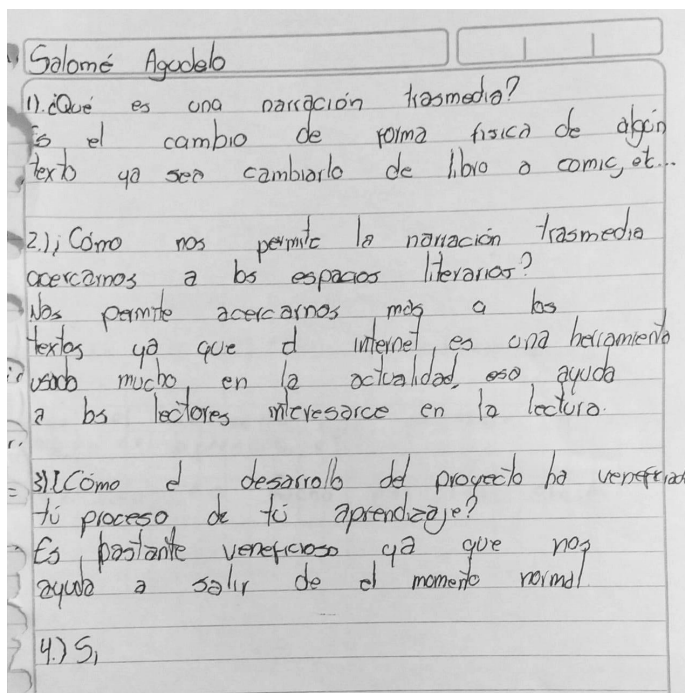 Salomé Agudelo
1). ¿Qué es una narración trasmedia?
Es el cambio de forma fisica de algún
texto ya sea cambiarlo de libro a comic, et...
2.) ¿Cómo nos permite la narración trasmedia
acercarnos a los espacios literarios?
Nos permite acercarnos más a los
textos ya que el internet es una herramienta
usada mucho en la actualidad, eso ayuda
a los lectores interesarce en la lectura.
3) ¿Cómo el desarrollo del proyecto ha veneficiad
tú proceso de tú aprendizaje?
Es bastante veneficioso ya que nos
ayuda a salir de el momento normal
4.) Si